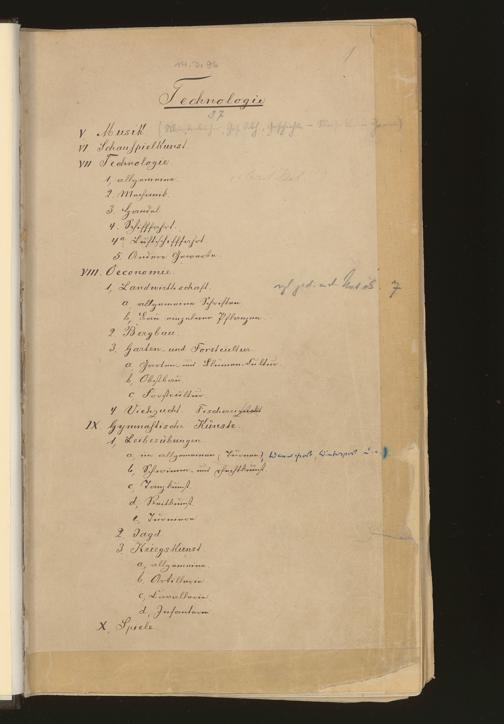 1
Technologie
37
V Musik
VI Schauspielkunst
VII Technologie
1, allgemeine
2. Mechanik
3. Handel
4. Schifffahrt
4a Luftschifffahrt
5. Andere Gewerbe
VIII. Oeconomie
1, Landwirthschaft
a allgemeine Schriften
b, Bau einzelner Pflanzen
2 Bergbau
3, Garten- und Forstcultur
a, Garten- und Blumen-Cultur
b, Obstbau
c Forstcultur
4 Viehzucht. Fischerei
IX Gymnastische Künste
1, Leibesübungen
a, im allgemeinen, (Turnen)
b, Schwimm- und Fechtkunst
c, Tanzkunst
d, Reitkunst
e, Turniere
2 Jagd
3 Kriegskunst
a, allgemeine
b, Artillerie
c, Cavallerie
d, Infanterie
X, Spiele